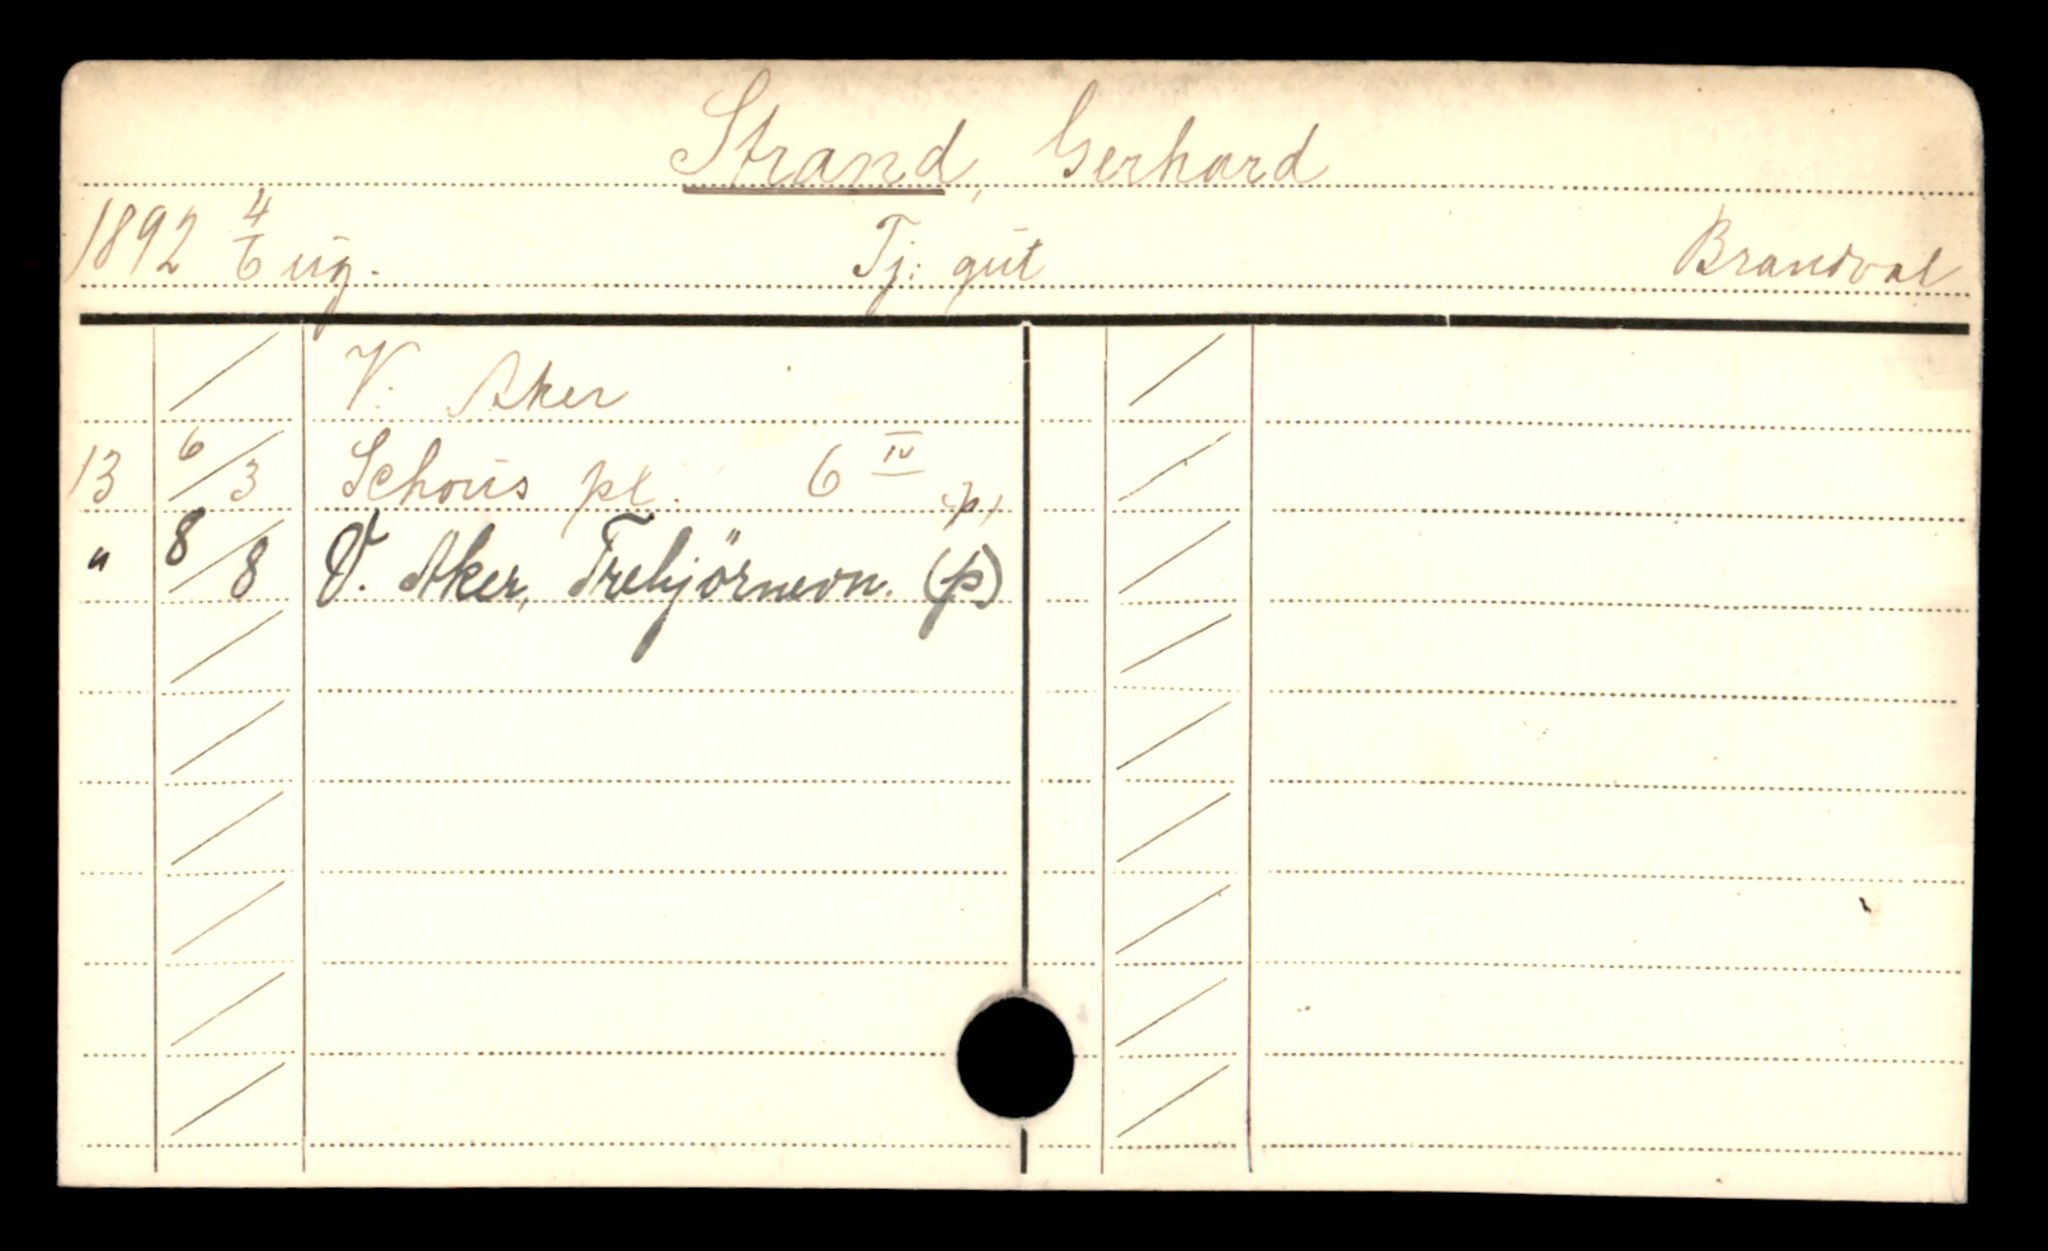 Strand, Gerhard
1892 4/6 ug. Tj: gut Brandval
V. Aker
13 6/3 Schous pl. 6 IV p)
" 8/8 V. Aker, Trehjörnevn. (p)